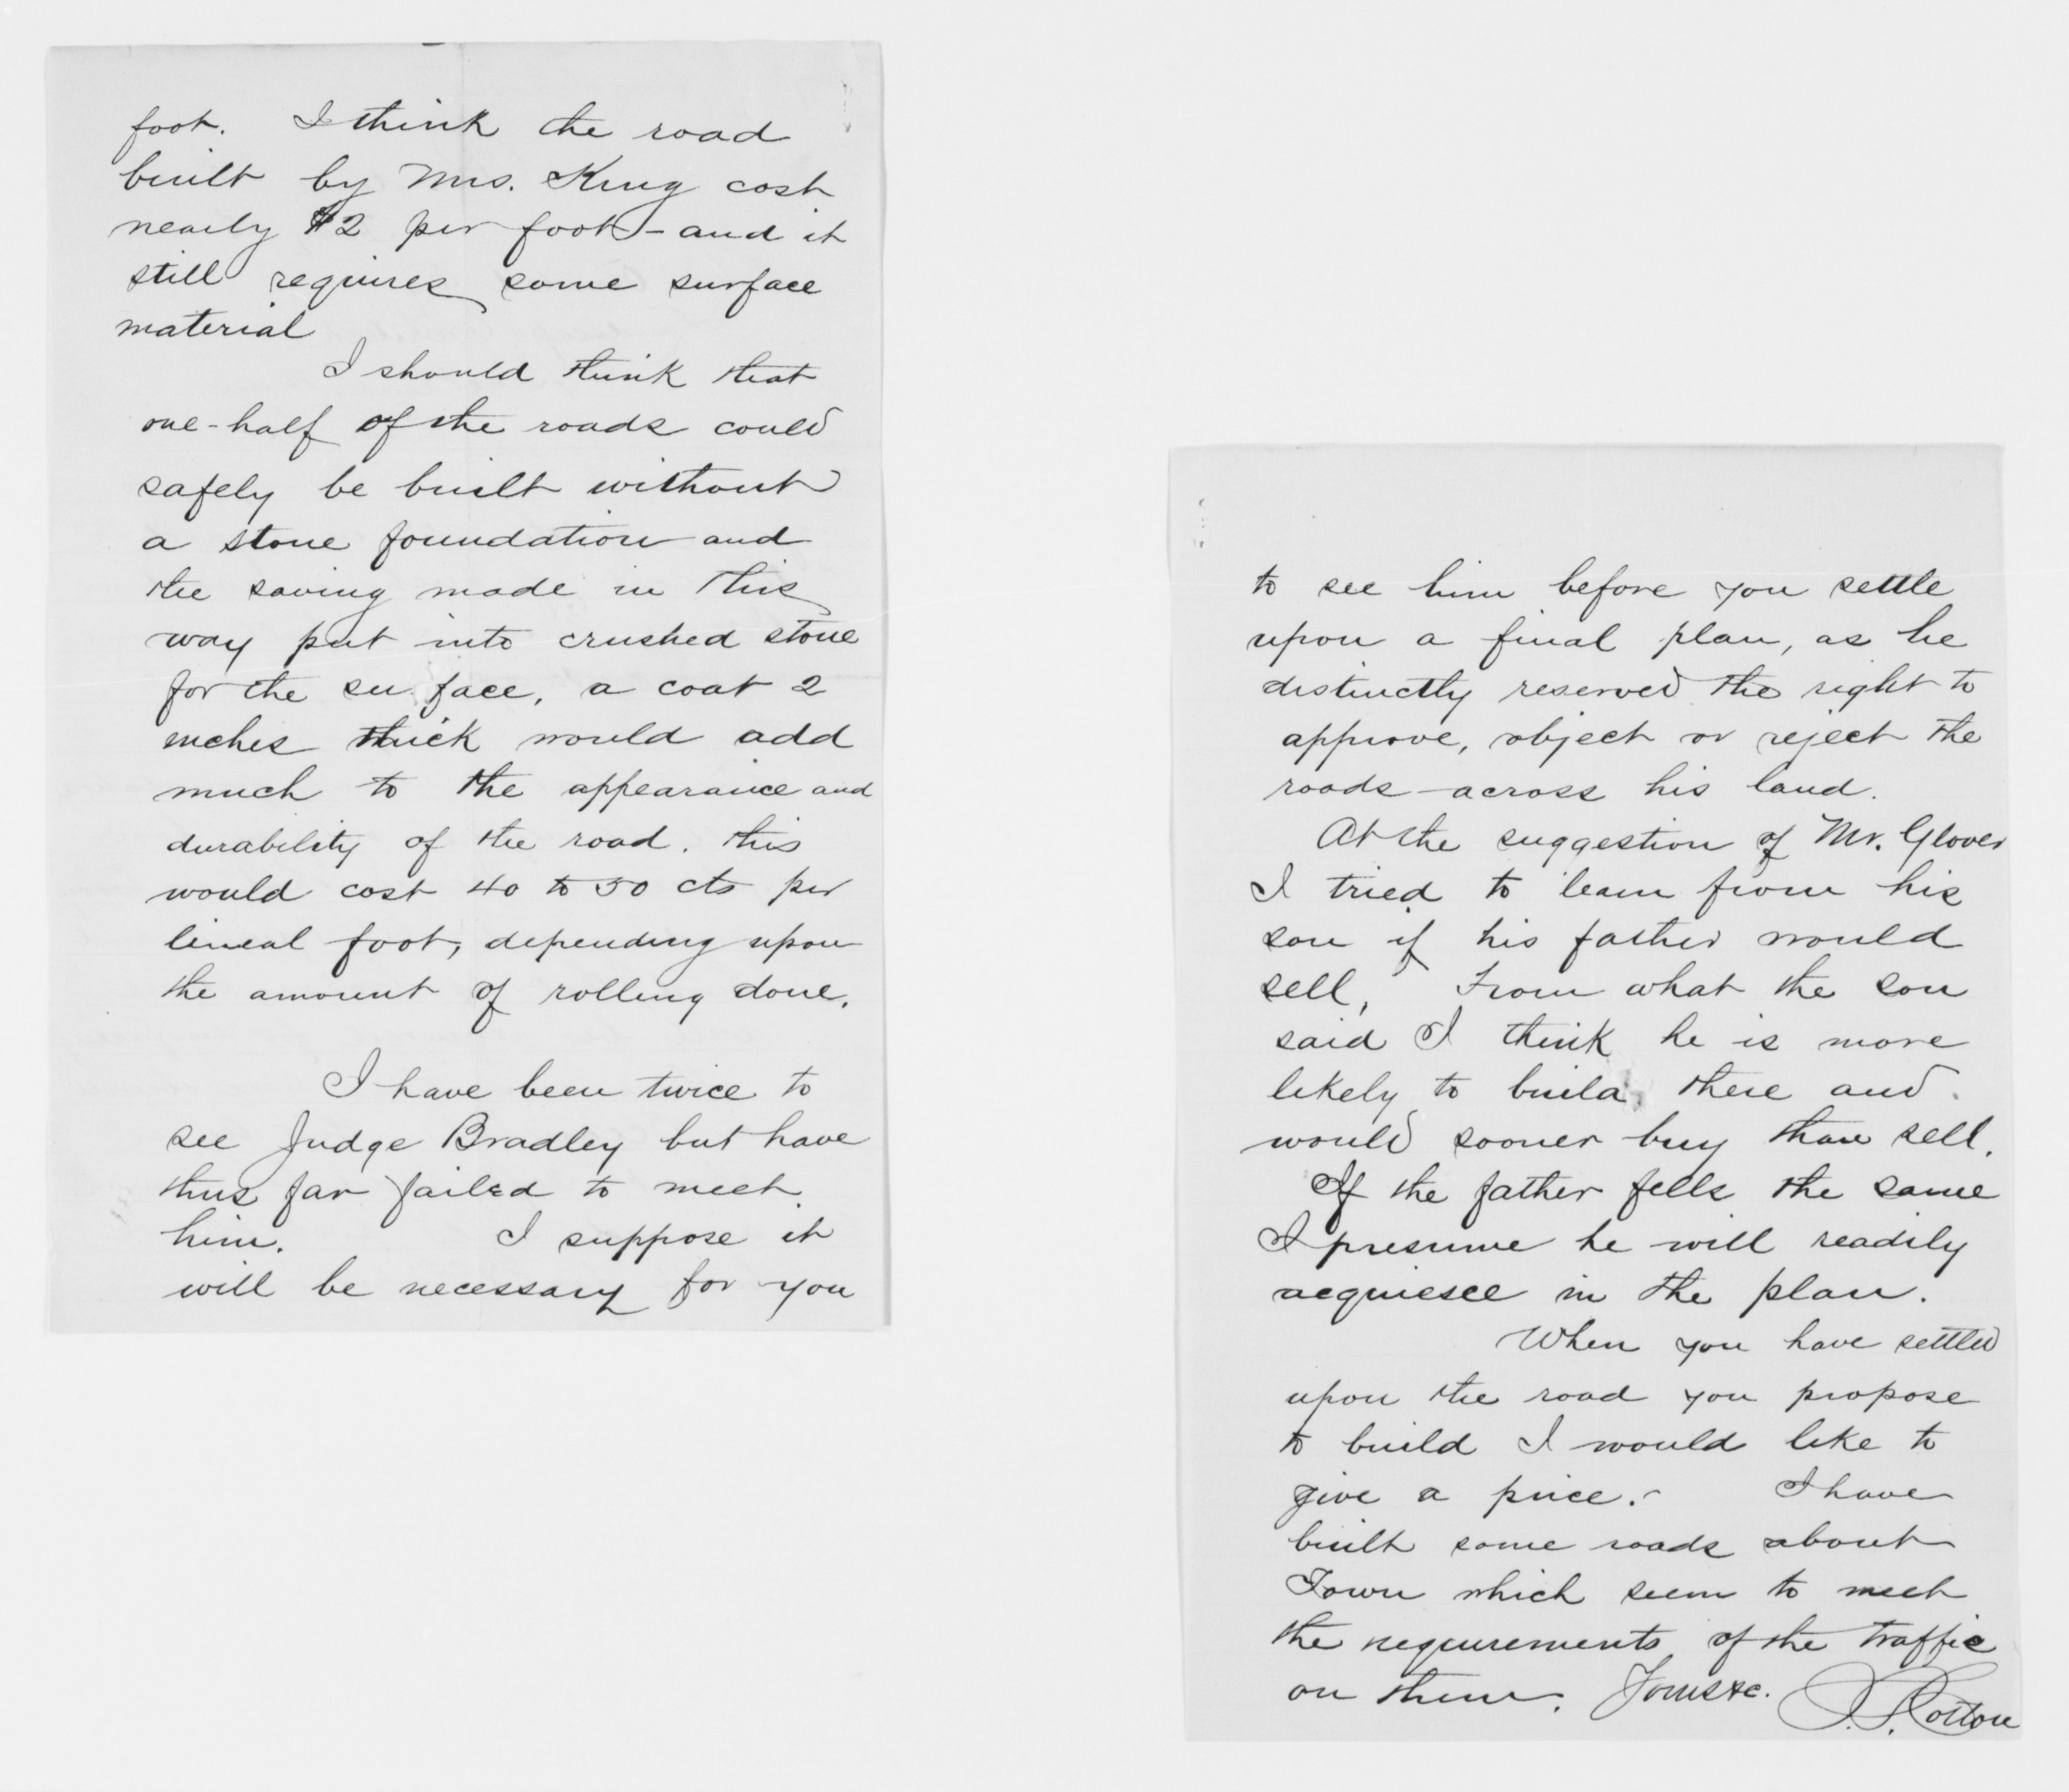 foot. I think the road
built by Mrs. King cost
nearly $2 per foot - and it
still requires some surface
material
I should think that
one-half of the roads could
safely be built without
a stone foundation and
the saving made in this
way put into crushed stone
for the su face, a coat 2
inches thick would add
much to the appearance and
durability of the road. this
would cost 40 to 50 cts per
lineal foot, depending upon
the amount of rolling done.
I have been twice to
see Judge Bradley but have
thus far failed to meet
him. I suppose it
will be necessary for you
to see him before you settle
upon a final plan, as he
distinctly reserved the right to
approve, object or reject the
roads across his land.
At the suggestion of Mr. Glover
I tried to learn from his
son if his father would
sell, From what the son
said I think he is more
likely to build there and
would sooner buy than sell.
If the father fells the same
I presume he will readily
acquiesce in the plan.
When you have settled
upon the road you propose
to build I would like to
give a price. - I have
built some roads about
Town which seem to meet
the requirements of the traffic
on them. Yours &c. Cotton